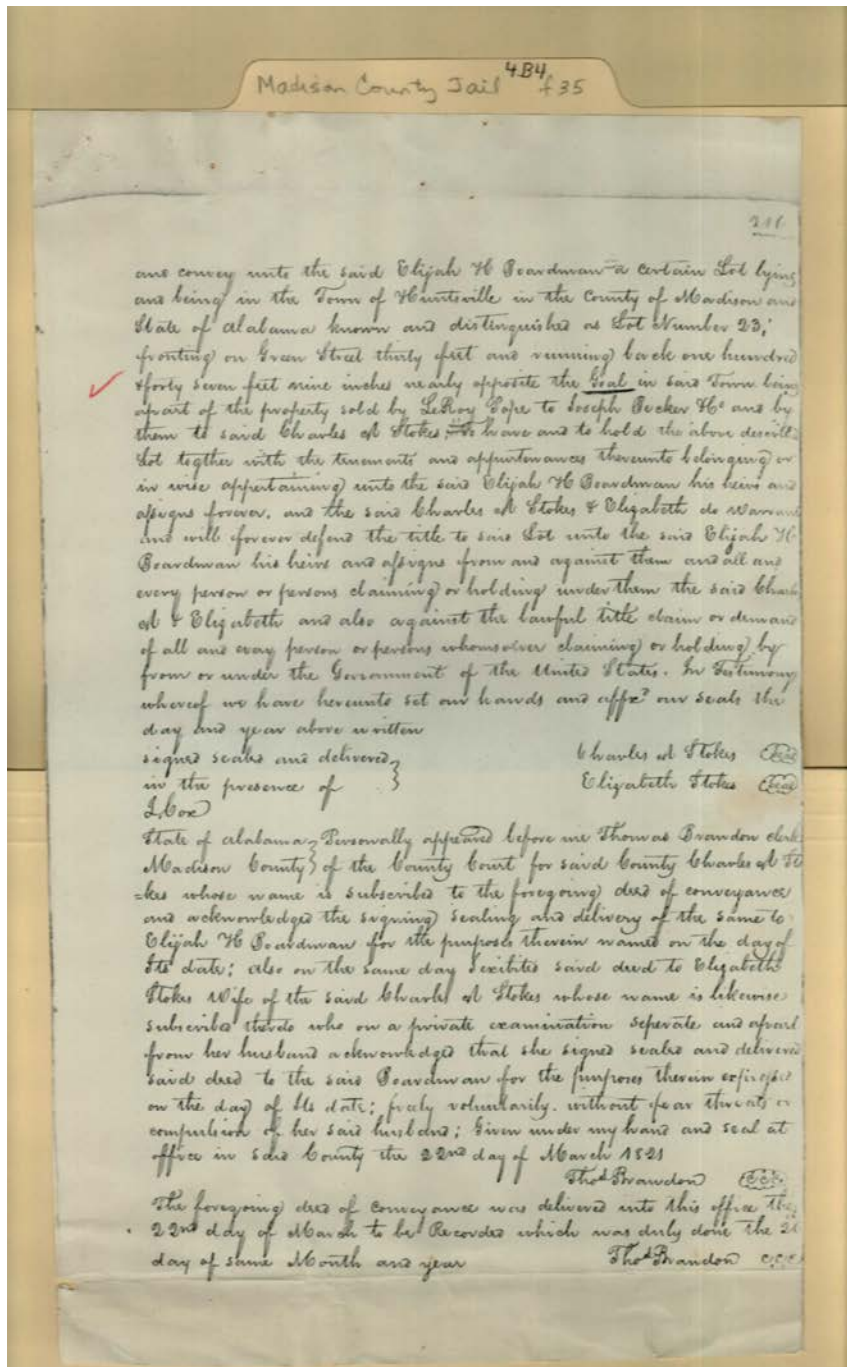 Madison County Jail 4B4 f35
and convey unto the said Elijah H Boardman a certain Lot lying
and being in the Town of Huntsville in the County of Madison and
State of Alabama known and distinguished as Lot Number 23,
fronting on Green Street thirty feet and running back one hundred
& forty seven feet nine inches nearly opposite the Goal in said Town being
apart of the property sold by LeRoy Pope to Joseph Pecker & Co and by
them to said Charles A Stokes to have and to hold the above describd
Lot togther with the tenements and appurtenances thereunto belonging or
in wise appertaining unto the said Elijah H Boardman his heirs and
assigns forever. and the said Charles A Stokes & Elizabeth do warrant
and will forever defend the title to said Lot unto the said Elijah H
Boardman his heirs and assigns from and against them and all and
every person or persons claiming or holding under them the said Charls
A & Elizabeth and also against the lawful title claim or demand
of all and evay person or persons whomsoever claiming or holding by
from or under the Government of the United States. In Testimony
whereof we have hereunto set our hands and affxd our seals the
day and year above written
signed sealed and delivered Charles A Stokes Seal
in the presence of Elizabeth Stokes Seal
J. Cox
State of Alabama Personally appeared before me Thomas Brandon clerk
Madison County of the County Court for said County Charles A Sto
=kes whose name is subscribed to the foregoing deed of conveyance
and acknowledged the signing sealing and delivery of the same to
Elijah H Boardman for the purposes therein named on the day of
Its date; also on the same day exibited said deed to Elizabeth
Stokes Wife of the said Charles A Stokes whose name is likewise
subscribed thereto who on a private examination seperate and apart
from her husband acknowledged that she signed sealed and delivered
said deed to the said Boardman for the purposes therein expressed
on the day of Its date; freely voluntarily. without fear threats or
compulsion of her said husband; Given under my hand and seal at
office in said County the 22nd day of March 1821
Thos Brandon C.C.C.
The foregoing deed of conveyance was delivered into this office the
22nd day of March to be Recorded which was duly done the
day of same Month and year Thos Brandon C.C.C